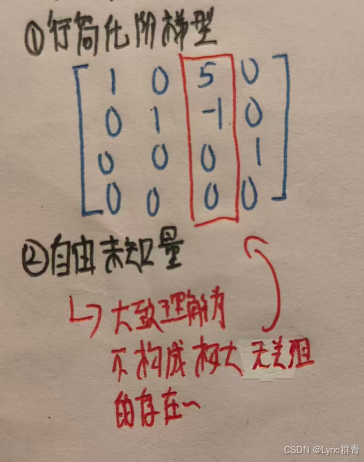 ①行简化阶梯型
1 0 5 0
0 1 -1 0
0 0 0 1
0 0 0 0
②自由未知量
↳大致理解为
不构成极大无关组
的存在~
CSDN @Lyric群青